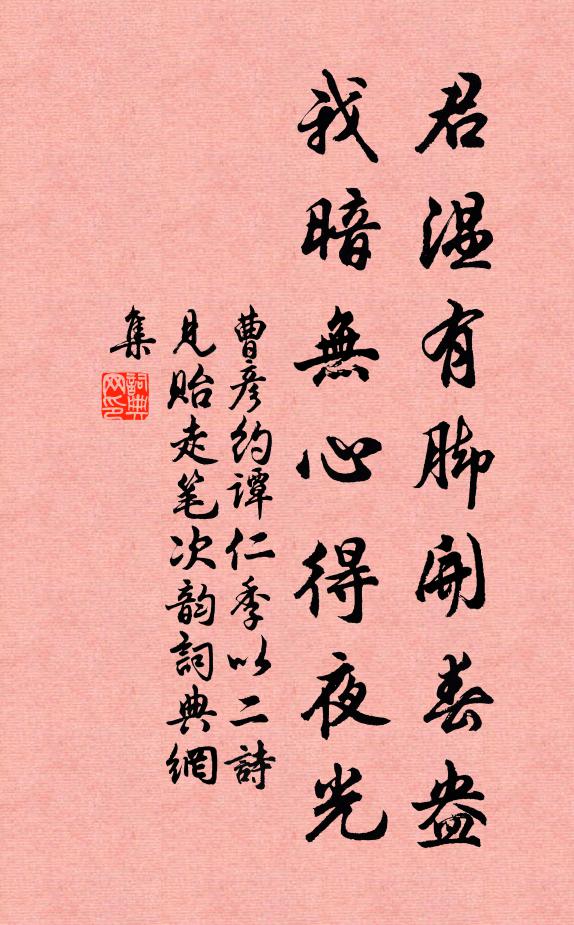 君溫有脚開春盎
我暗無心得夜光
曹彦約譚仁季以二詩
見貽走笔次韵詞典網
集
詞典網印